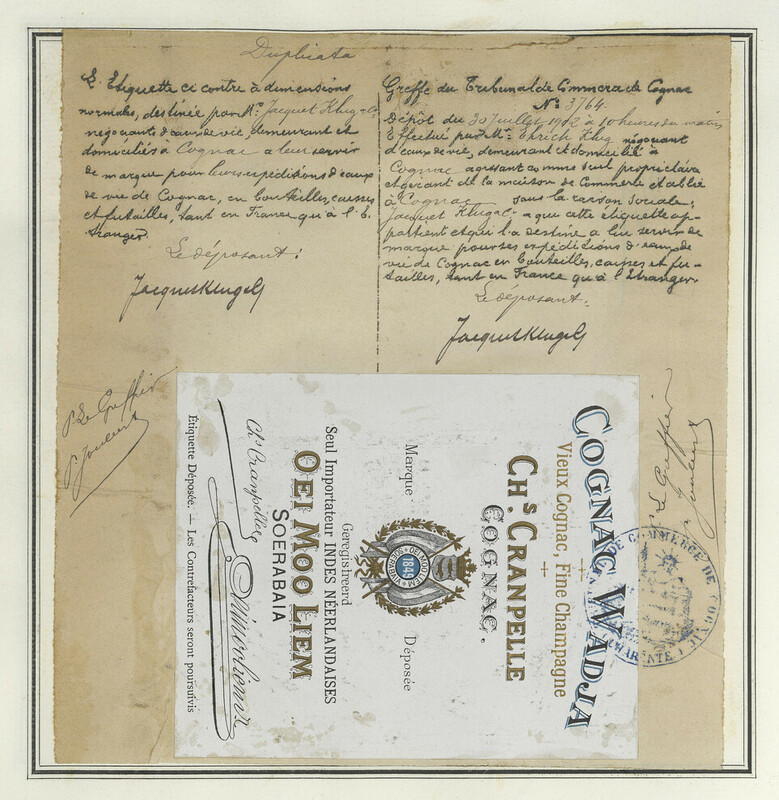 Duplicata
L'Etiquette ci contre à dimensions
normales, destinée par Mrs Jacquet Klug & Co
négociants d'eaux de vie, demeurant et
domiciliés à Cognac a leur servir
de marque pour leurs expéditions d'eaux
de vie de Cognac, en bouteilles, caisses
et futailles, tant en France qu'à l'E
tranger.
Le déposant:
Jacquet Klug & Co
Greffe du Tribunal de Commerce de Cognac
No 3764.
Dépôt du 30 Juillet 1902 à 10 heures du matin
Effectué par Mr Ehrich Klug négociant
d'eaux de vie, demeurant et domicilié à
Cognac agissant comme seul propriétaire
et gérant de la maison de Commerce établie
à Cognac sous la raison sociale:
Jacquet Klug & Co a que cette étiquette ap-
partient et qui l'a destine a lui servir de
marque pour ses expéditions d'eaux de
vie de Cognac en bouteilles, caisses et fu-
tailles, tant en France qu'à l'Etranger.
Le déposant.
Jacquet Klug & Co
P. Le Greffier
P. Le Greffier
COGNAC WADJA
Vieux Cognac, Fine Champagne
CHS. CRANPELLE
COGNAC.
Marque Déposée
OEI MOO LIEM
1849
Geregistreerd
Seul Importateur INDES NÉERLANDAISES
OEI MOO LIEM
SOERABAIA
Chs Cranpelle
Oeimooliem
Étiquette Déposée. — Les Contrefacteurs seront poursuivis
DE COMMERCE DE COGNAC
CHARENTE